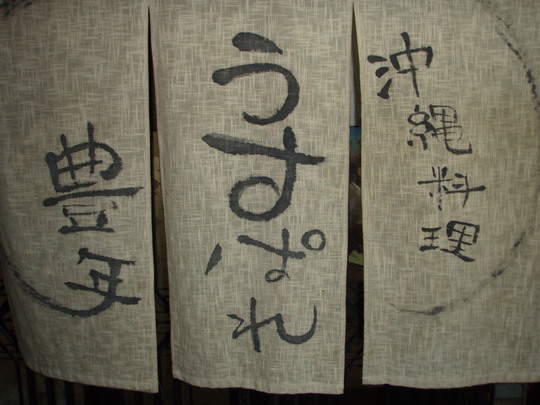 沖縄料理
うすぱれ
豊年